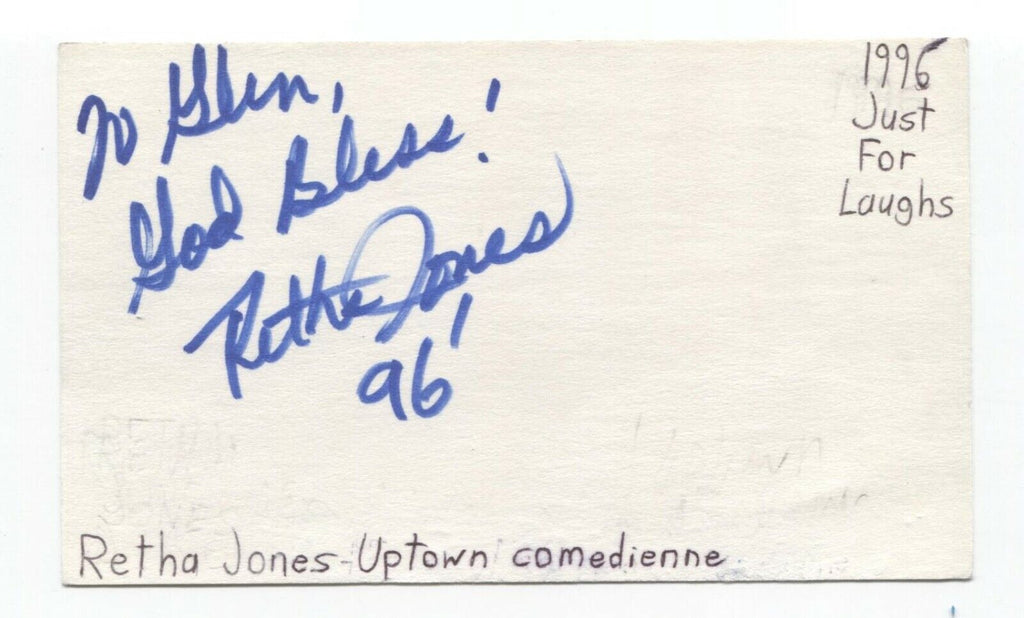 To Glen,
God Bless!
Retha Jones
96'
1996
Just
For
Laughs
Retha Jones-Uptown comedienne